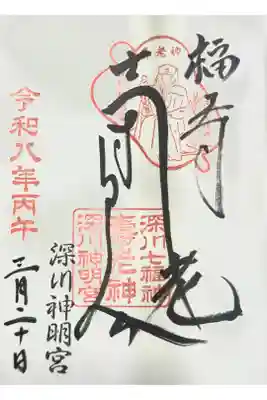 福寿
深川七福神
壽老神
深川神明宮
深川神明宮
令和八年丙午
三月二十日